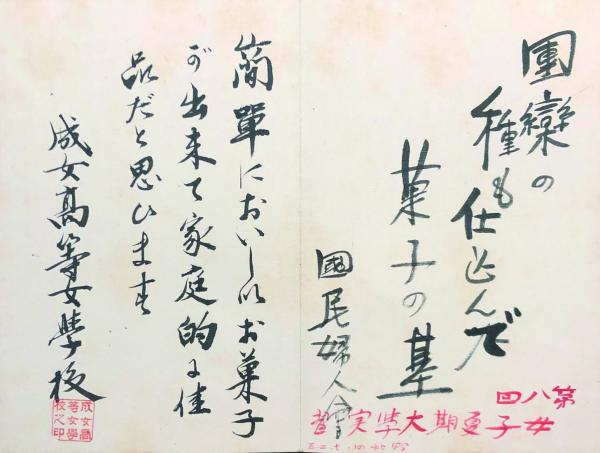 團欒の
種も仕込んで
菓子の基
國民婦人會
第八回
女子夏期大学実習
簡單においしいお菓子
が出来て家庭的な佳
品だと思ひます
成女高等女學校
成女高
等女學
校之印